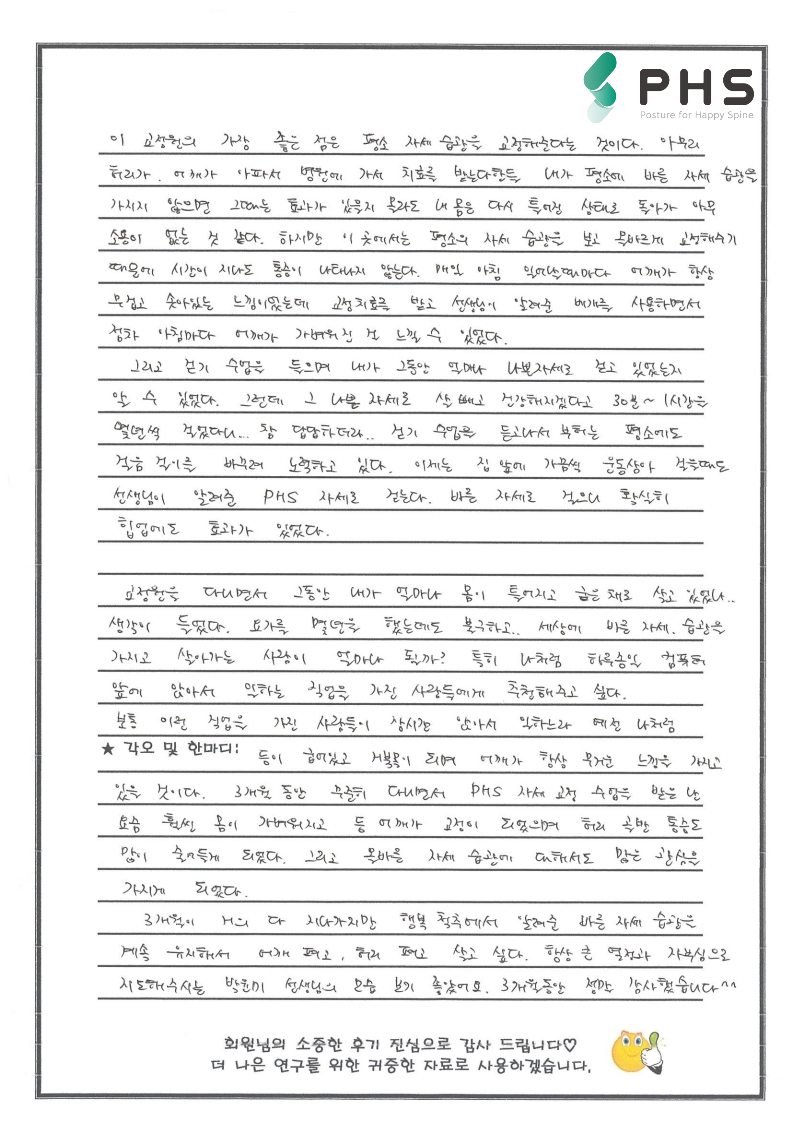 PHS
Posture for Happy Spine
이 교정원의 가장 좋은 점은 평소 자세 습관을 교정해준다는 것이다. 아무리
허리가, 어깨가 아파서 병원에 가서 치료를 받는다한들 내가 평소에 바른 자세 습관을
가지지 않으면 그때는 효과가 있을지 몰라도 내 몸은 다시 틀어진 상태로 돌아가 아무
소용이 없는 것 같다. 하지만 이 곳에서는 평소의 자세 습관을 보고 올바르게 교정해주기
때문에 시간이 지나도 통증이 나타나지 않는다. 매일 아침 일어날때마다 어깨가 항상
무겁고 솟아있는 느낌이있는데 교정치료를 받고 선생님이 알려준 베개를 사용하면서
점차 아침마다 어깨가 가벼워진 걸 느낄 수 있었다.
그리고 걷기 수업을 들으며 내가 그동안 얼마나 나쁜자세로 걷고 있었는지
알 수 있었다. 그런데 그 나쁜 자세로 살 빼고 건강해지겠다고 30분~1시간을
몇년씩 걸었다니... 참 답답하더라.. 걷기 수업을 듣고나서 부터는 평소에도
걸음 걸이를 바꾸려 노력하고 있다. 이제는 집 앞에 가끔씩 운동삼아 걸을때도
선생님이 알려준 PHS 자세로 걷는다. 바른 자세로 걸으니 확실히
힙업에도 효과가 있었다.
교정원을 다니면서 그동안 내가 얼마나 몸이 틀어지고 굽은 채로 살고 있었나..
생각이 들었다. 요가를 몇년을 했는데도 불구하고.. 세상에 바른 자세, 습관을
가지고 살아가는 사람이 얼마나 될까? 특히 나처럼 하루종일 컴퓨터
앞에 앉아서 일하는 직업을 가진 사람들에게 추천해주고 싶다.
보통 이런 직업을 가진 사람들이 장시간 앉아서 일하느라 예전 나처럼
★ 각오 및 한마디: 등이 굽어있고 거북목이 되며 어깨가 항상 무거운 느낌을 가지고
있을 것이다. 3개월 동안 꾸준히 다니면서 PHS 자세 교정 수업을 받은 난
요즘 훨씬 몸이 가벼워지고 등 어깨가 교정이 되었으며 허리 골반 통증도
많이 줄어들게 되었다. 그리고 올바른 자세 습관에 대해서도 많은 관심을
가지게 되었다.
3개월이 거의 다 지나가지만 행복 척추에서 알려준 바른 자세 습관을
계속 유지해서 어깨 펴고, 허리 펴고 살고 싶다. 항상 큰 열정과 자부심으로
지도해주시는 박윤미 선생님의 모습 보기 좋았어요. 3개월동안 정말 감사했습니다^^
회원님의 소중한 후기 진심으로 감사 드립니다♡
더 나은 연구를 위한 귀중한 자료로 사용하겠습니다.